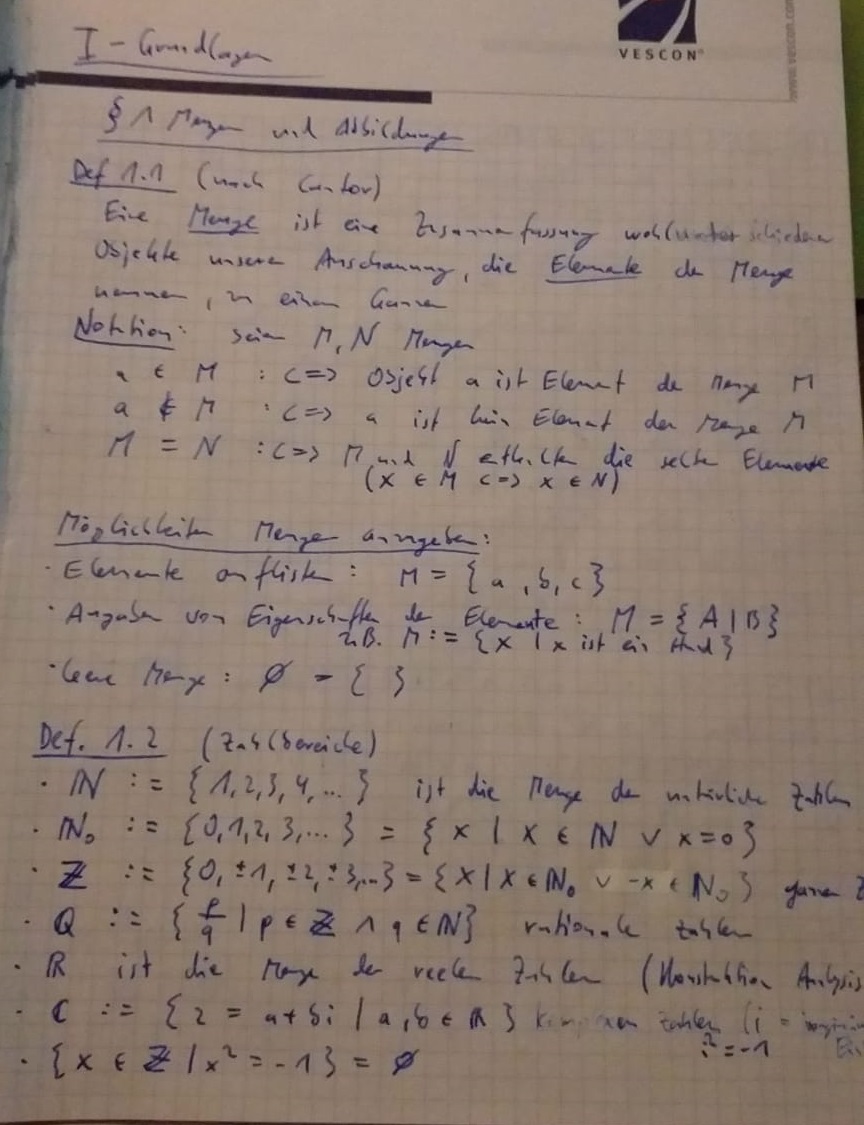 VESCON
www.vescon.com
I - Grundlagen
§ 1 Mengen und Abbildungen
Def 1.1 (nach Cantor)
Eine Menge ist eine Zusammenfassung wohlunterschiedener
Objekte unserer Anschauung, die Elemente der Menge
nennen, zu einem Ganzen
Notation: seien M, N Mengen
a ∈ M :<=> Objekt a ist Element der Menge M
a ∉ M :<=> a ist kein Element der Menge M
M = N :<=> M und N enthalten die selben Elemente
(x ∈ M <=> x ∈ N)
Möglichkeiten Mengen anzugeben:
· Elemente auflisten: M = { a, b, c }
· Angaben von Eigenschaften der Elemente: M = { A | B }
z.B. M := { x | x ist ein Hund }
· leere Menge: ∅ = { }
Def. 1.2 (Zahlbereiche)
· ℕ := { 1, 2, 3, 4, ... } ist die Menge der natürliche Zahlen
· ℕ₀ := { 0, 1, 2, 3, ... } = { x | x ∈ ℕ ∨ x = 0 }
· ℤ := { 0, ±1, ±2, ±3, ... } = { x | x ∈ ℕ₀ ∨ -x ∈ ℕ₀ } ganzen Z
· Q := { p/q | p ∈ ℤ ∧ q ∈ ℕ } rationale Zahlen
· ℝ ist die Menge der reelen Zahlen (Konstruktion Analysis
· ℂ := { z = a + bi | a, b ∈ ℝ } komplexen Zahlen (i =
i² = -1
· { x ∈ ℤ | x² = -1 } = ∅